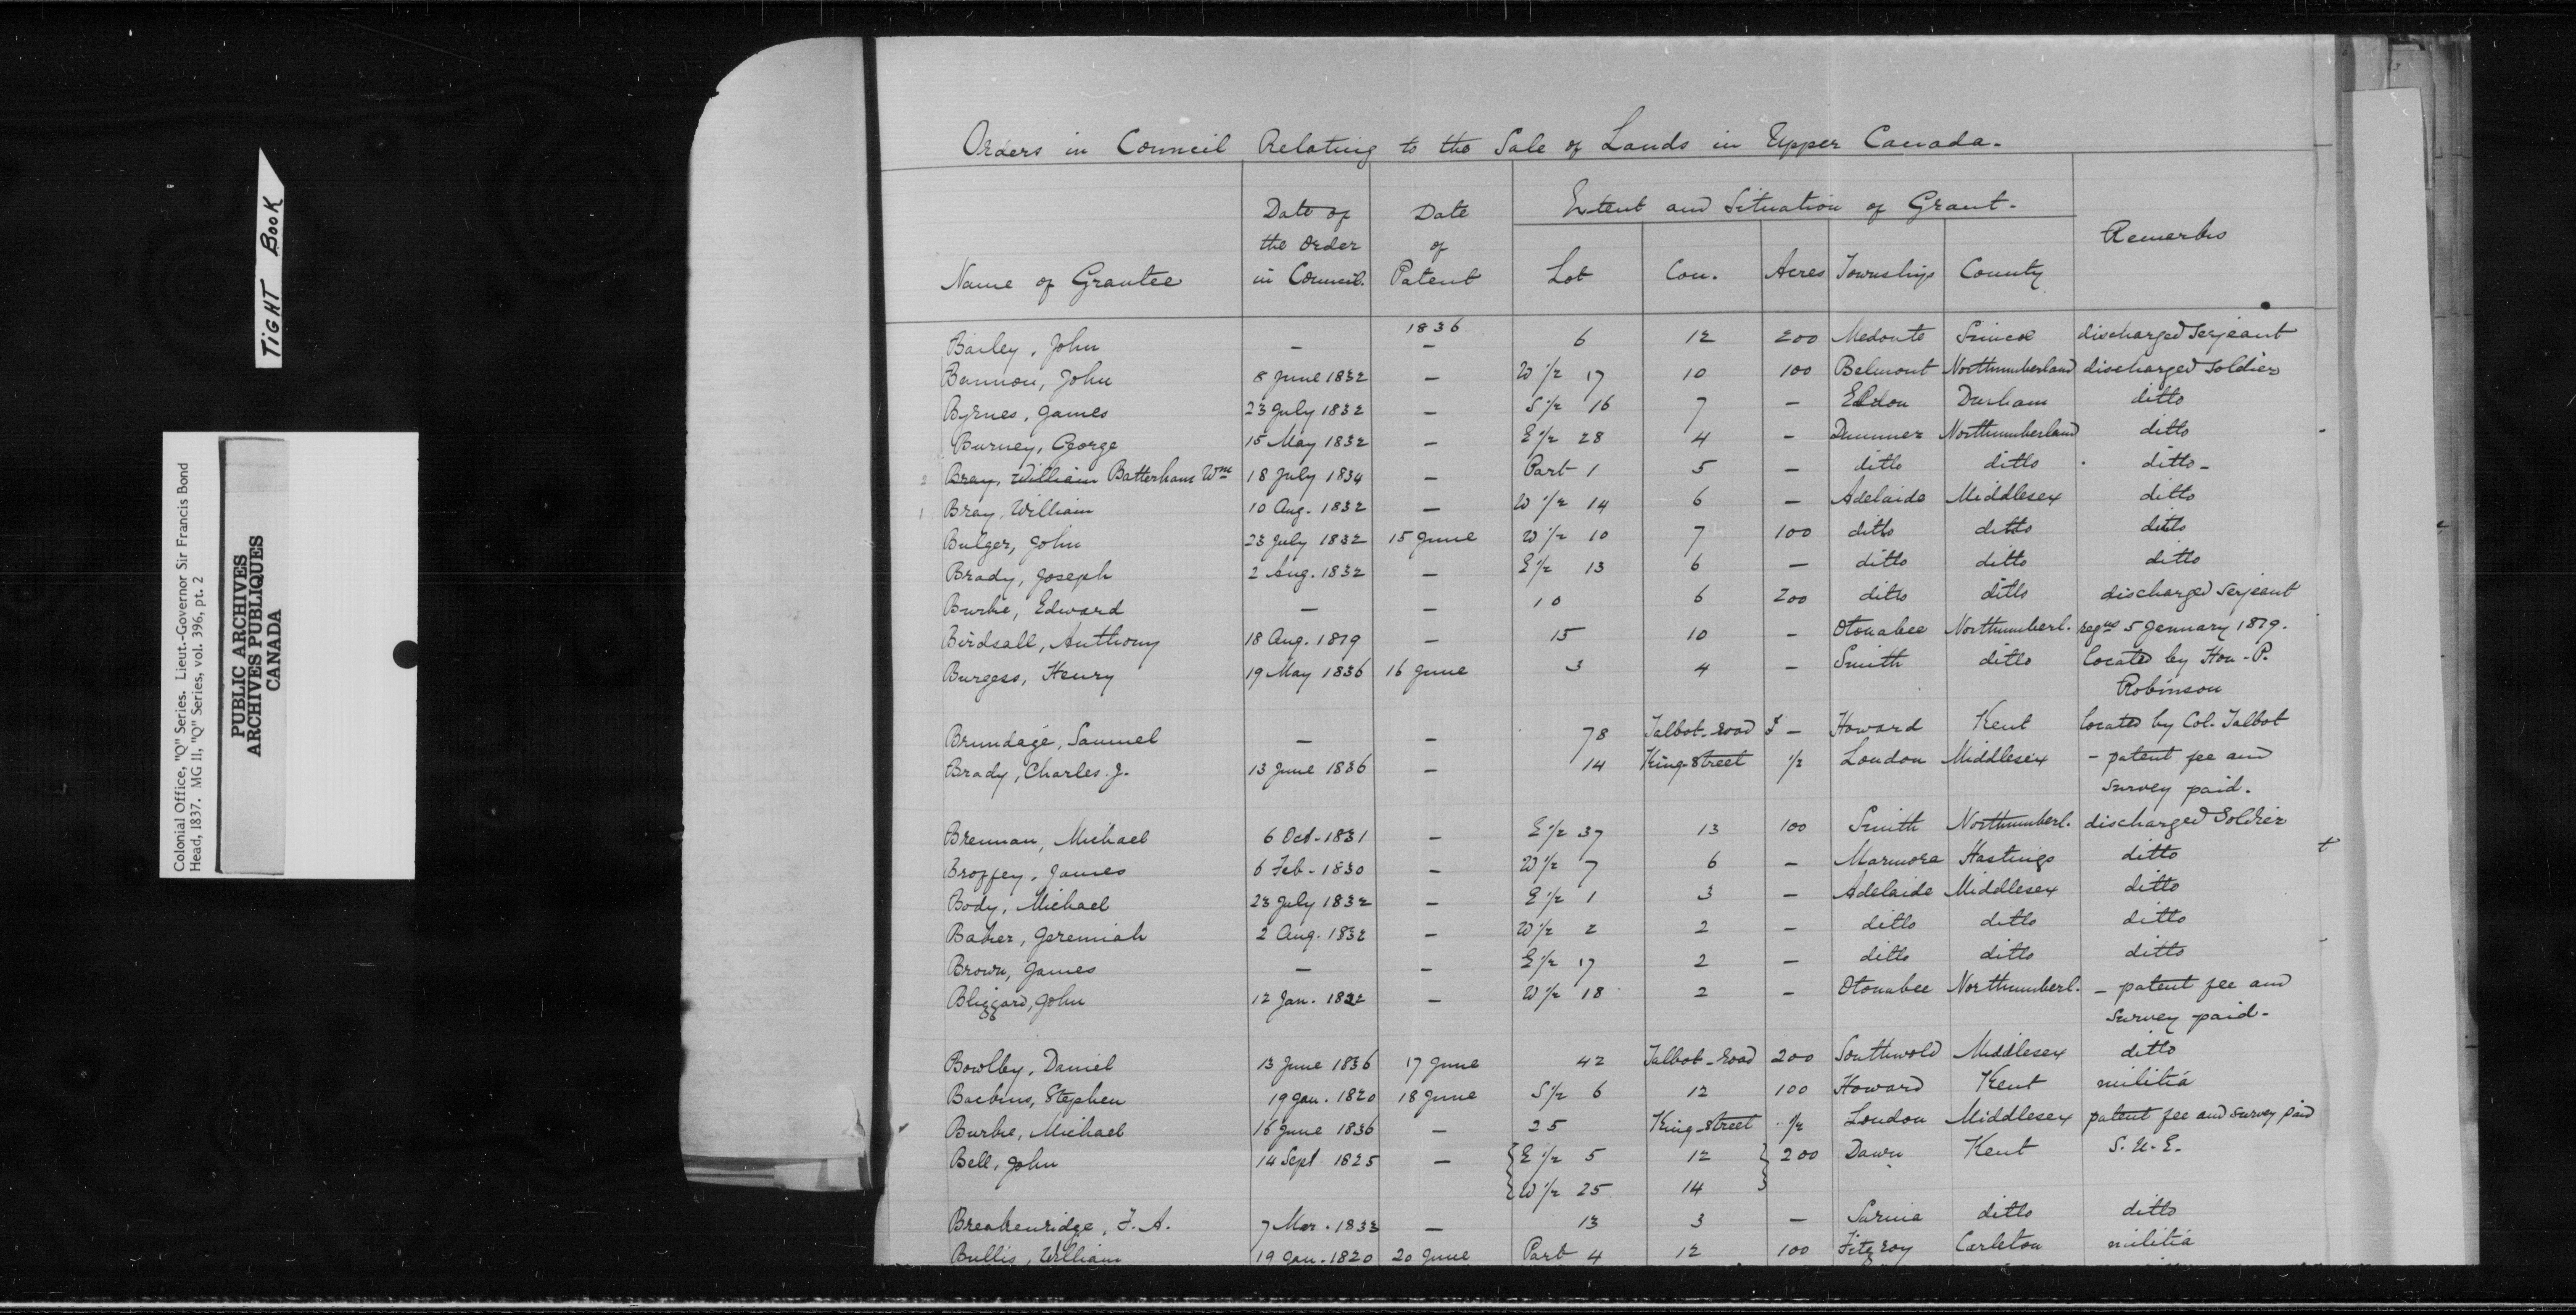 TIGHT BOOK
Colonial Office, "Q" Series. Lieut.-Governor Sir Francis Bond
Head, 1837. MG 11, "Q" Series, vol. 396, pt. 2
PUBLIC ARCHIVES
ARCHIVES PUBLIQUES
CANADA
Orders in Council Relating to the Sale of Lands in Upper Canada.
Name of Grantee Date of the Order in Council. Date of Patent Extent and Situation of Grant. Lot Con. Acres Township County Remarks
1836
Bailey, John — — 6 12 200 Medonte Simcoe discharged Serjeant
Bannon, John 8 June 1832 — W 1/2 17 10 100 Belmont Northumberland discharged Soldier
Byrnes, James 23 July 1832 — S 1/2 16 7 — Eldon Durham ditto
Burney, George 15 May 1832 — E 1/2 28 4 — Dummer Northumberland ditto
2 Bray, William Batterham Wm 18 July 1834 — Part 1 5 — ditto ditto ditto-
1 Bray, William 10 Aug. 1832 — W 1/2 14 6 — Adelaide Middlesex ditto
Bulger, John 23 July 1832 15 June W 1/2 10 7 100 ditto ditto ditto
Brady, Joseph 2 Aug. 1832 — E 1/2 13 6 — ditto ditto ditto
Burke, Edward — — 10 6 200 ditto ditto discharged Serjeant
Birdsall, Anthony 18 Aug. 1819 — 15 10 — Otonabee Northumberl. 5 January 1819.
Burgess, Henry 19 May 1836 16 June 3 4 — Smith ditto located by Hon. P.
Robinson
Brundage, Samuel — — 78 Talbot-road — Howard Kent located by Col. Talbot
Brady, Charles J. 13 June 1836 — 14 King-Street 1/2 London Middlesex - patent fee and
survey paid.
Brennan, Michael 6 Oct. 1831 — E 1/2 37 13 100 Smith Northumberl. discharged Soldier
Broffey, James 6 Feb. 1830 — W 1/2 7 6 — Marmora Hastings ditto
Body, Michael 23 July 1832 — E 1/2 1 3 — Adelaide Middlesex ditto
Baker, Jeremiah 2 Aug. 1832 — W 1/2 2 2 — ditto ditto ditto
Brown, James — — E 1/2 17 2 — ditto ditto ditto
Blizzard, John 12 Jan. 1822 — W 1/2 18 2 — Otonabee Northumberl. - patent fee and
survey paid-
Bowlby, Daniel 13 June 1836 17 June 42 Talbot-road 200 Southwold Middlesex ditto
Backus, Stephen 19 Jan. 1820 18 June S 1/2 6 12 100 Howard Kent militia
Burke, Michael 16 June 1836 — 25 King-street 1/2 London Middlesex patent fee and survey paid
Bell, John 14 Sept. 1825 — E 1/2 5 12 200 Dawn Kent S.U.E.
W 1/2 25 14
Breakenridge, J. A. 7 Mar. 1833 — 13 3 — Sarnia ditto ditto
Bullis, William 19 Jan. 1820 20 June Part 4 12 100 Fitzroy Carleton militia